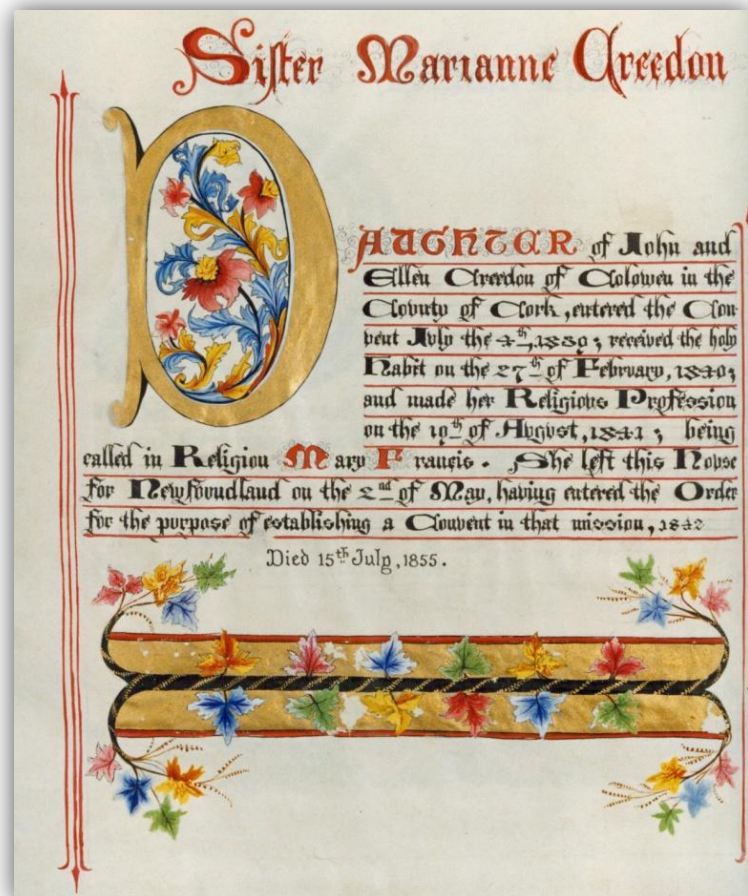 Sister Marianne Creedon
DAUGHTER of John and
Ellen Creedon of Colowen in the
County of Cork, entered the Con
vent July the 4th, 1839; received the holy
Habit on the 27th of February, 1840;
and made her Religious Profession
on the 19th of August, 1841; being
called in Religion Mary Francis. She left this House
for Newfoundland on the 2nd of May, having entered the Order
for the purpose of establishing a Convent in that mission, 1842
Died 15th July, 1855.